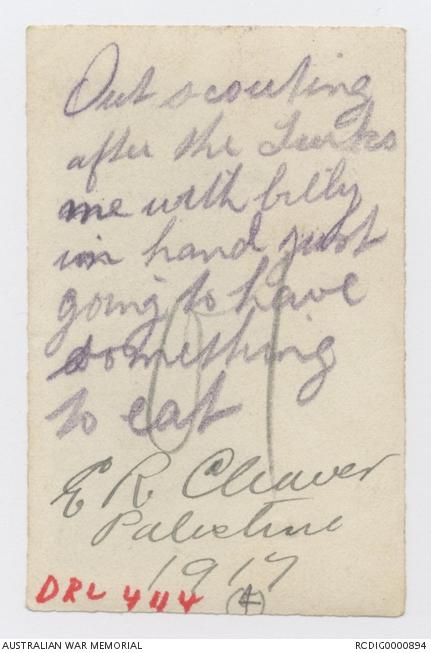 Out scouting
after the Turks
me with billy
in hand just
going to have
something
to eat
E R Cleaver
Palestine
1917
DRL 444 4
AUSTRALIAN WAR MEMORIAL RCDIG0000894